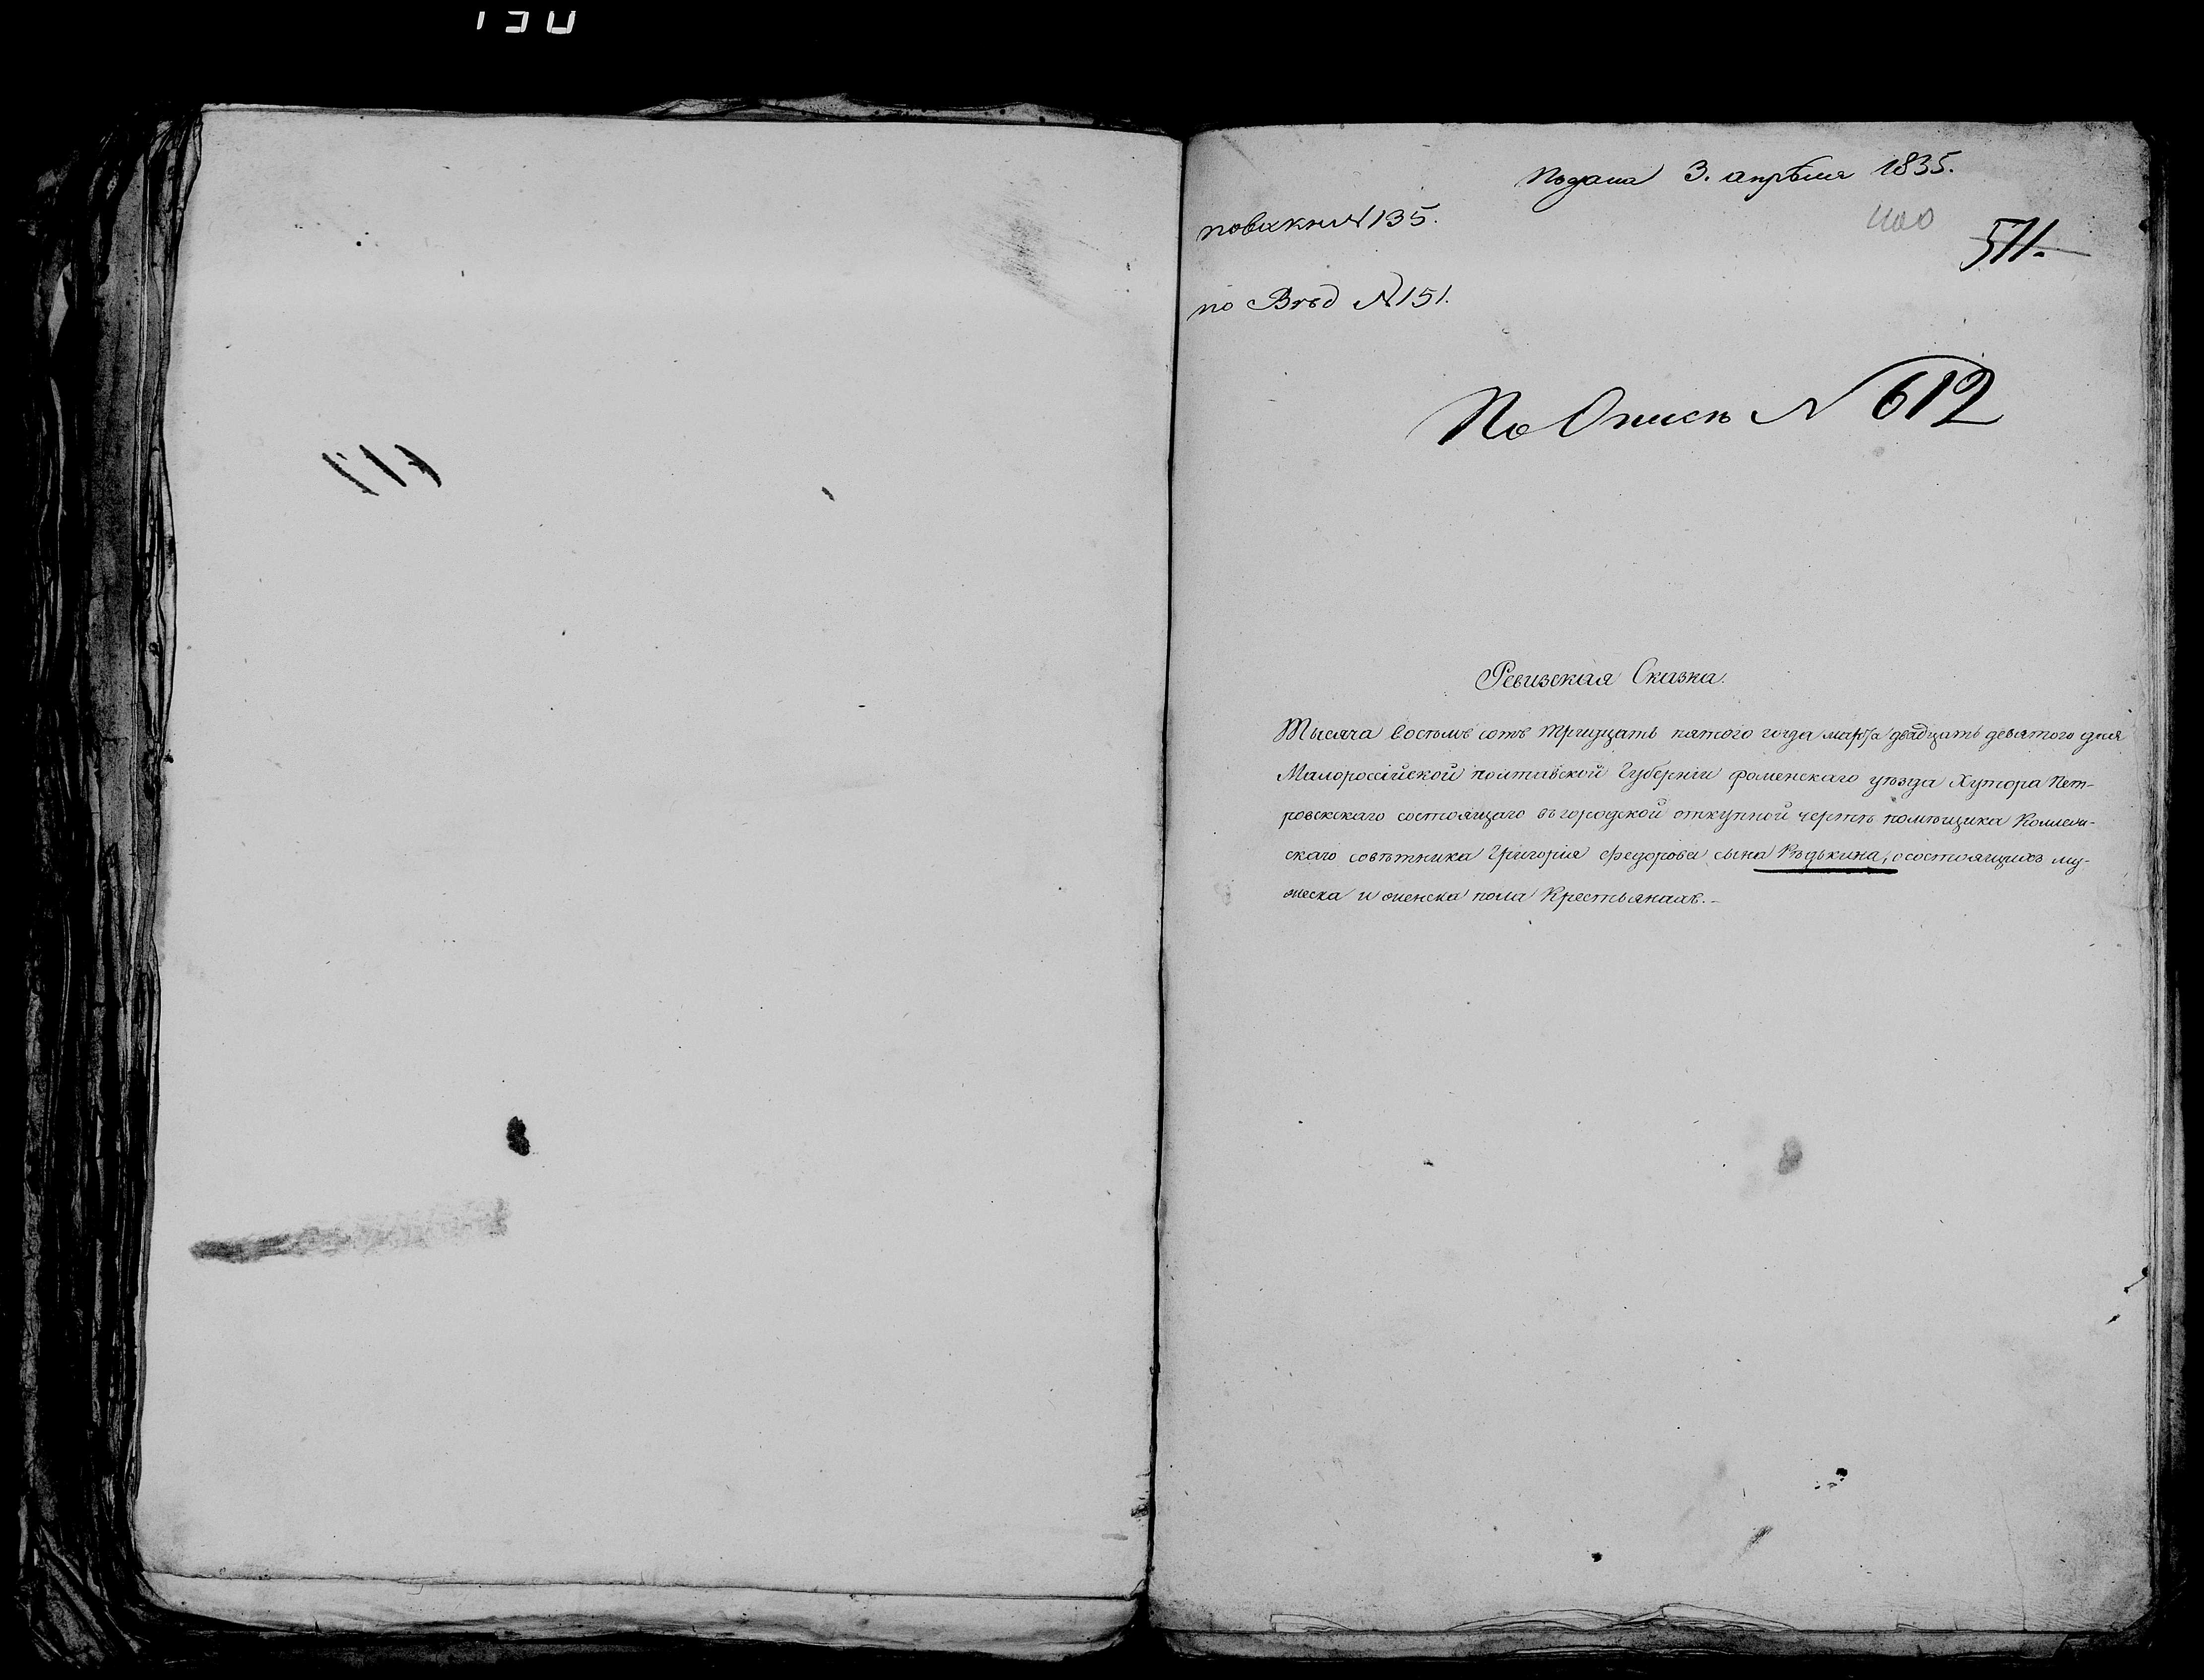 Подана 3. апрѣля 1835.
по алк. № 135.
400
571.
по Вѣд № 151.
По Описи № 612
Ревизская Сказка.
Тысяча восемь сотъ тридцать пятого года марта двадцать девятого дня
Малороссійской полтавской Губерніи роменскаго уѣзда Хутора Пет-
ровскскаго состоящаго въ городской откупной чертѣ помѣщика Коллеж-
скаго совѣтника Григорія Федорова сына Рѣдькина, о состоящихъ му-
жеска и женска пола Крестьянахъ.-